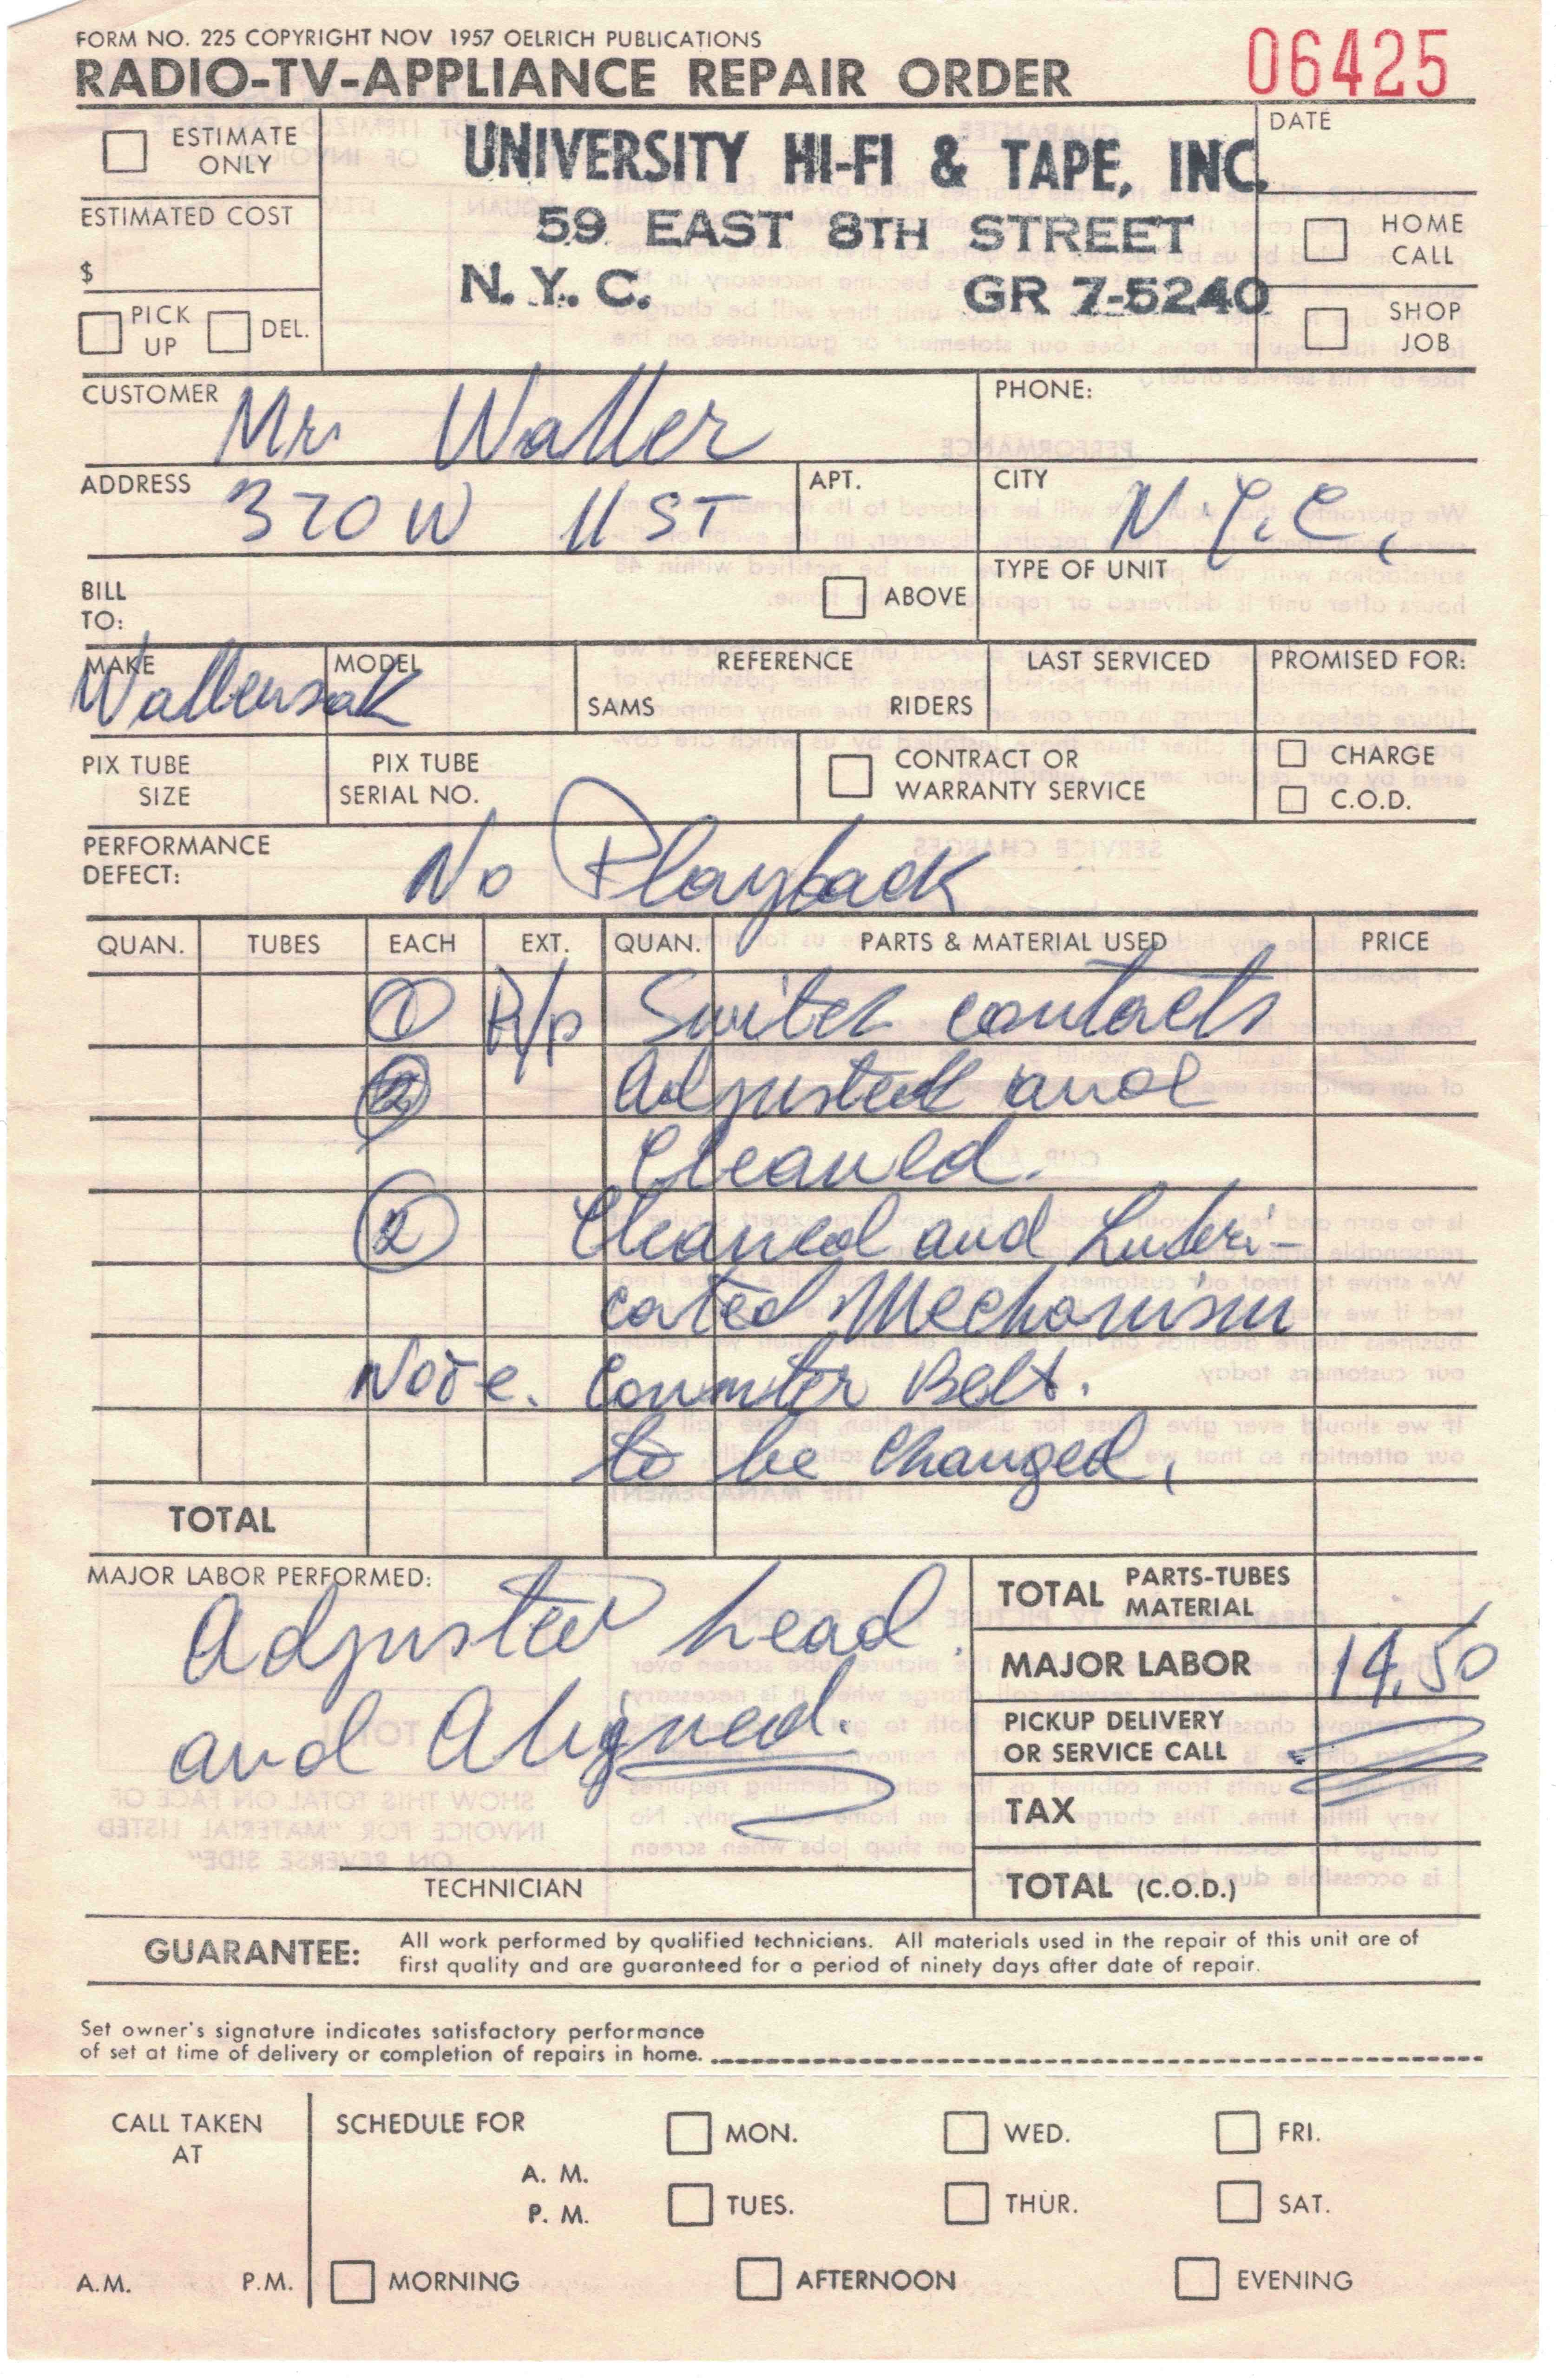 FORM NO. 225 COPYRIGHT NOV 1957 OELRICH PUBLICATIONS
RADIO-TV-APPLIANCE REPAIR ORDER 06425
ESTIMATE ONLY
UNIVERSITY HI-FI & TAPE, INC.
DATE
59 EAST 8TH STREET
ESTIMATED COST
HOME CALL
$
N.Y.C. GR 7-5240
PICK UP DEL.
SHOP JOB
CUSTOMER Mr Waller PHONE:
ADDRESS 320 W 11 ST APT. CITY N.Y.C.
BILL TO: ABOVE TYPE OF UNIT
MAKE Wallensak MODEL REFERENCE LAST SERVICED PROMISED FOR:
SAMS RIDERS
PIX TUBE SIZE PIX TUBE SERIAL NO. CONTRACT OR WARRANTY SERVICE CHARGE
C.O.D.
PERFORMANCE DEFECT: No Playback
QUAN. TUBES EACH EXT. QUAN. PARTS & MATERIAL USED PRICE
① R/p Switch contacts
Adjusted and
Cleaned.
② Cleaned and Lubri-
cated Mechanism
Note. Counter Belt.
to be Changed,
TOTAL
MAJOR LABOR PERFORMED:
Adjusted head.
and Aligned.
TOTAL PARTS-TUBES MATERIAL
MAJOR LABOR 14.50
PICKUP DELIVERY OR SERVICE CALL
TAX
TECHNICIAN
TOTAL (C.O.D.)
GUARANTEE: All work performed by qualified technicians. All materials used in the repair of this unit are of
first quality and are guaranteed for a period of ninety days after date of repair.
Set owner's signature indicates satisfactory performance
of set at time of delivery or completion of repairs in home.
CALL TAKEN AT SCHEDULE FOR MON. WED. FRI.
A. M.
P. M. TUES. THUR. SAT.
A.M. P.M. MORNING AFTERNOON EVENING